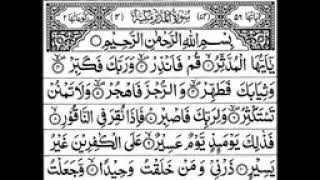 بِسْمِ اللّٰهِ الرَّحْمٰنِ الرَّحِيْمِ
يٰٓاَيُّهَا الْمُدَّثِّرُ ۙ قُمْ فَاَنْذِرْ ۙ وَرَبَّكَ فَكَبِّرْ ۙ
وَثِيَابَكَ فَطَهِّرْ ۙ وَالرُّجْزَ فَاهْجُرْ ۙ وَلَا تَمْنُنْ
تَسْتَكْثِرُ ۙ وَلِرَبِّكَ فَاصْبِرْ ۙ فَاِذَا نُقِرَ فِي النَّاقُوْرِ ۙ
فَذٰلِكَ يَوْمَئِذٍ يَّوْمٌ عَسِيْرٌ ۙ عَلَى الْكٰفِرِيْنَ غَيْرُ
يَسِيْرٍ ۙ ذَرْنِيْ وَمَنْ خَلَقْتُ وَحِيْدًا ۙ وَّجَعَلْتُ